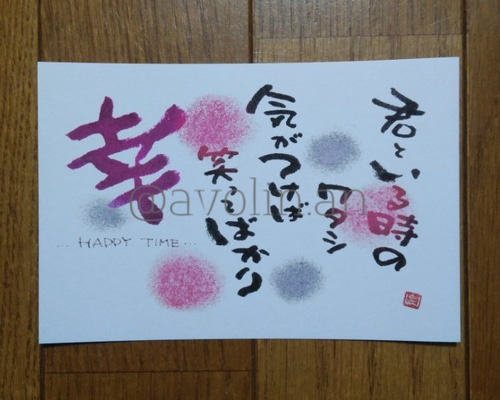 君といる時の
ワタシ
気がつけば
笑ってばかり
幸
... HAPPY TIME ...
@avolin.an